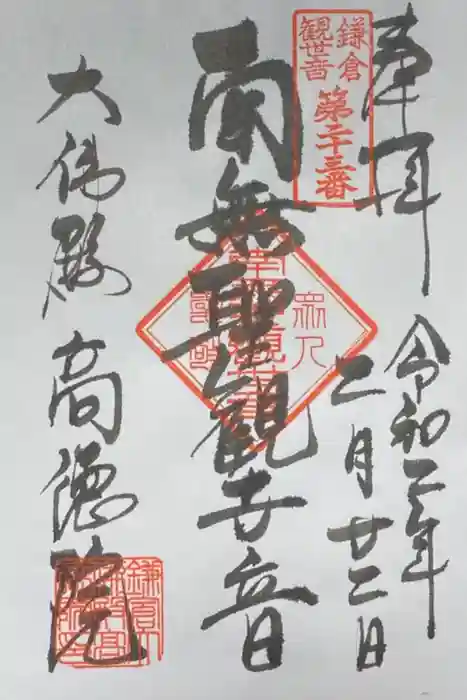 奉拝
令和二年
二月廿二日
鎌倉
観世音
第二十三番
南無聖観世音
大佛殿 高徳院